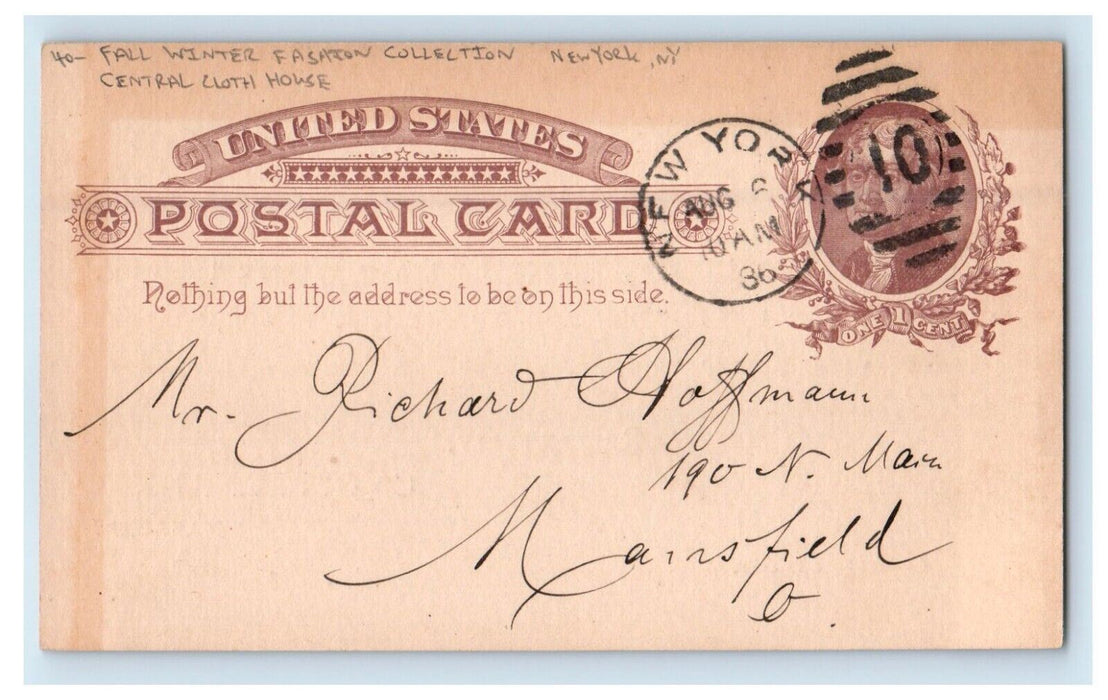 40- FALL WINTER FASHION COLLECTION NEW YORK, NY
CENTRAL CLOTH HOUSE
UNITED STATES
POSTAL CARD
Nothing but the address to be on this side.
NEW YORK
AUG
10 AM
86
10
ONE 1 CENT
Mr. Richard Hoffmann
190 N. Main
Mansfield
O.